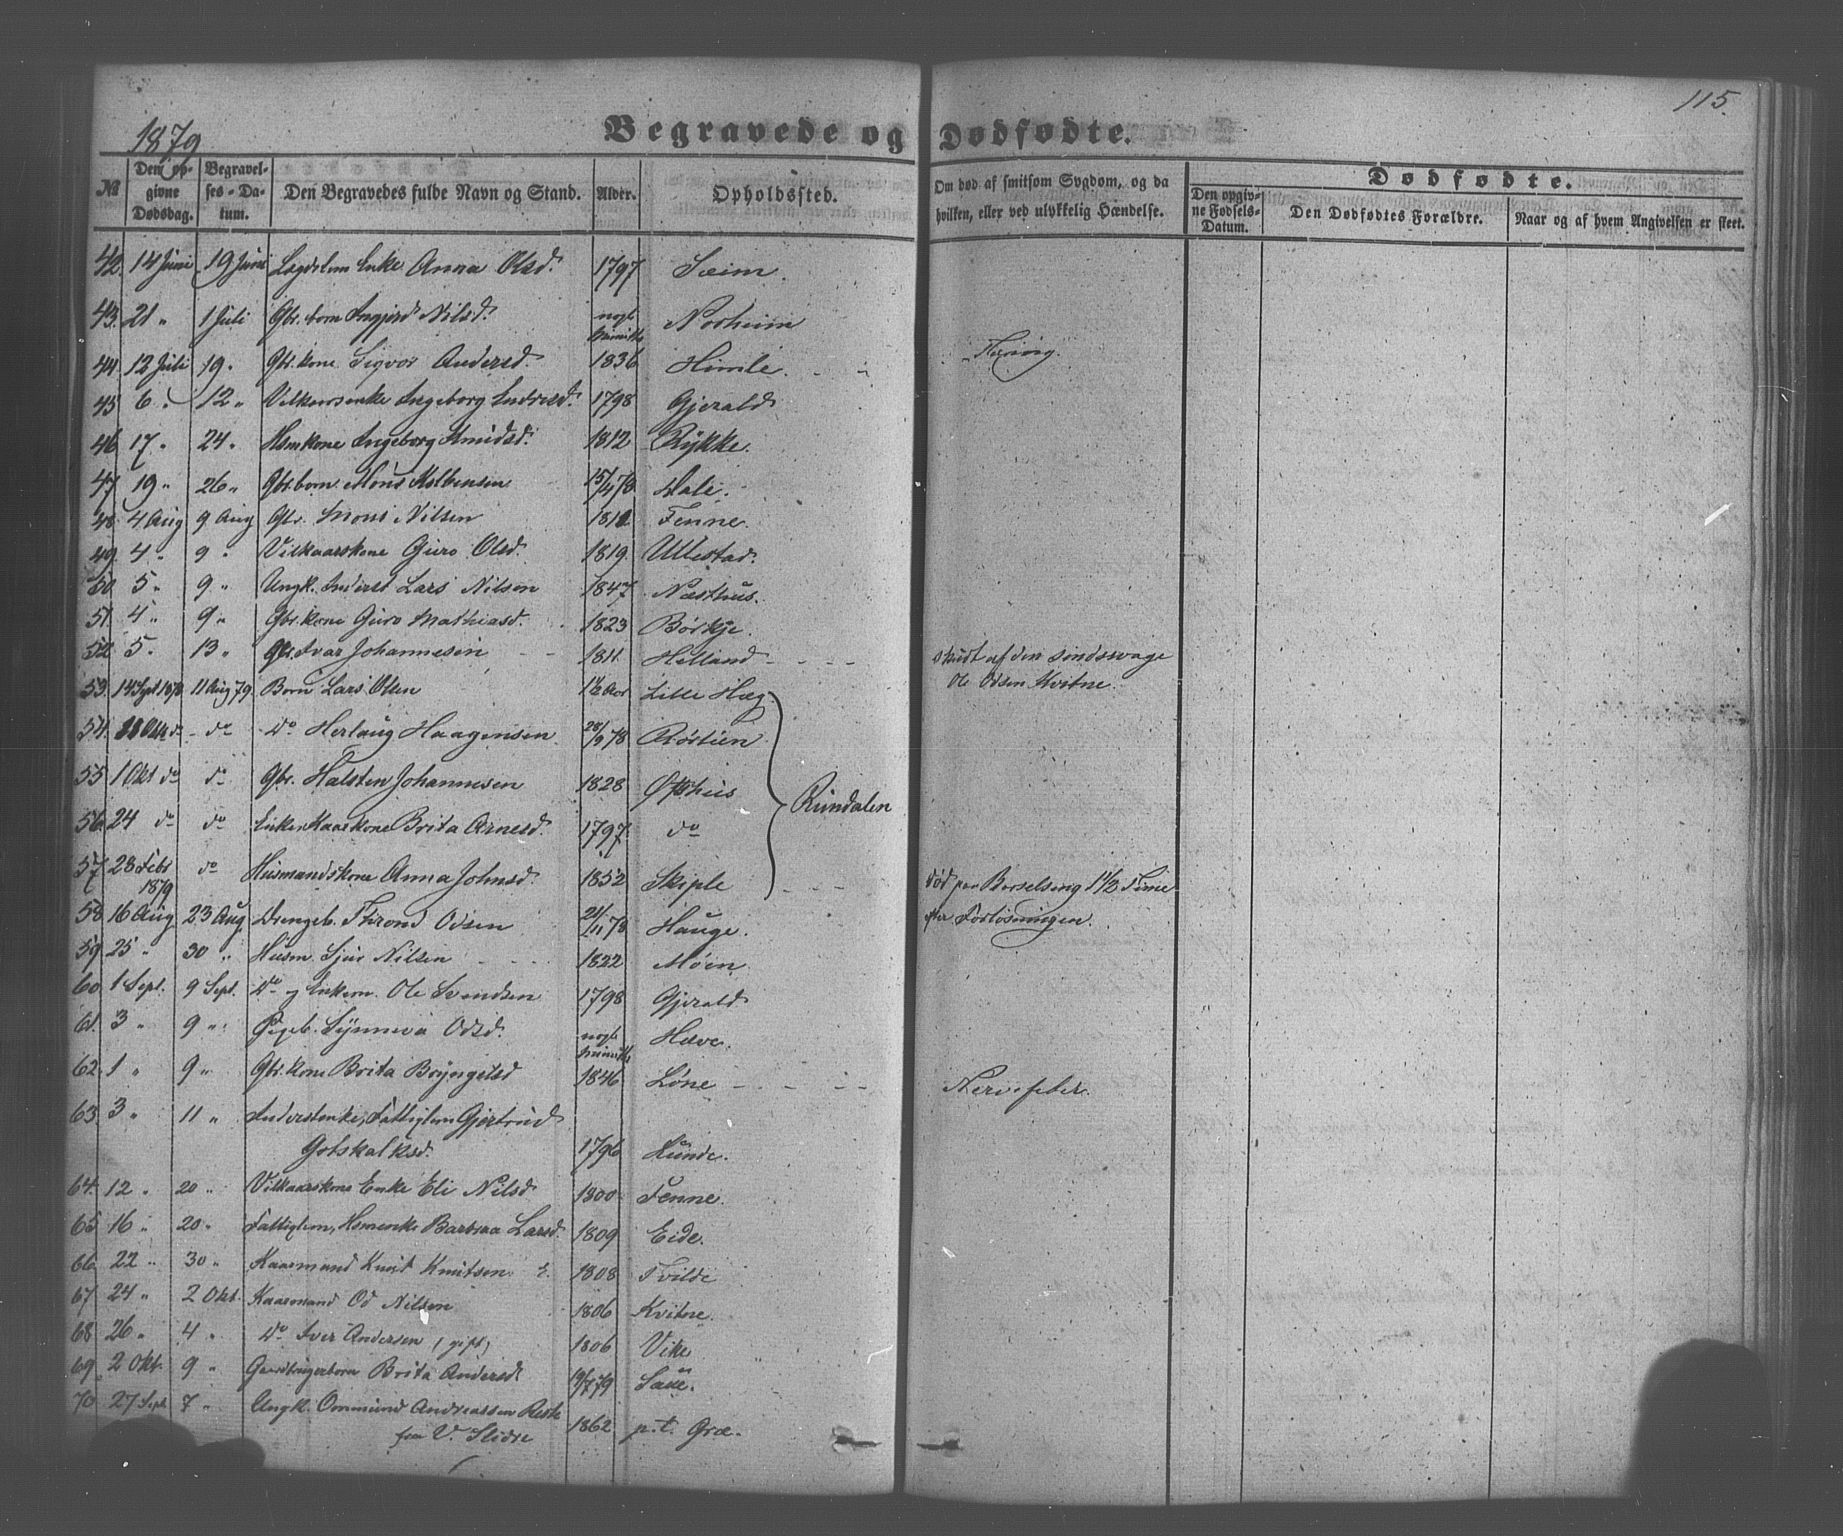 115.
1879
Begravede og Dødfødte.
№
Den opgivne Dødsdag.
Begravelses-Datum.
Den Begravedes fulde Navn og Stand.
Alder.
Opholdssted.
Om død af smitsom Sygdom, og da hvilken, eller ved ulykkelig Hændelse.
Dødfødte.
Den opgivne Fødsels-Datum.
Den Dødfødtes Forældre.
Naar og af hvem Angivelsen er skeet.
42. 14 Juni 19 Juni Lægdslem Enke Anna Olsd. 1797 Seim.
43. 21 " 1 Juli Gbr. barn Ingjerd Nilsd. nogl. Minutter Norheim
44. 12 Juli 19. Gbr. kone Sigvor Andersd. 1836 Himle. - -
45 6 " 12 " Vilkaarsenke Ingeborg Endresd. 1798 Gjerald
46 17 " 24 " Hsmkone Ingeborg Knudsd. 1812 Rykke.
47 19 " 26 " Gbr. barn Mons Kolbensen 15/4 78 Dale.
48. 4 Aug 9 Aug Gbr. Mons Nilsen 1811 Fenne.
49. 4 " 9 " Vilkaarskone Guro Olsd. 1819. Ullestad.
50 5 " 9 " Ungk. Inderst Lars Nilsen 1847 Næsthus.
51. 4 " 9 " Gbr. kone Guro Mathiasd. 1823 Børkje.
52 5. 13 " Gbr. Ivar Johannesen 1811. Helland - - - - skudt af den sindssvage
Ole Odsen Kvitne.
53. 14 Sept 1878 11 Aug 79 Barn Lars Olsen 1½ Aar Lille Hæg
54. do - do - Do Herlaug Haagensen 28/9 78 Rørtien
55 1 Okt do do Gbr. Halsten Johannesen 1828 Øfsthus
Rundalen
56. 24 do do Enke Kaarkone Brita Arnesd. 1797. do
57 28 Febr 1879 do Husmandskone Anna Johnsd. 1852 Skiple - - - død paa Barselseng 1½ Time
efter Forløsningen.
58 16 Aug 23 Aug Drengeb. Thrond Odsen 21/11 78 Hauge.
59. 25 " 30 " Husm. Sjur Nilsen 1822 Møen
60 1 Sept. 9 Sept. Do og Enkem. Ole Svendsen 1798 Gjerald
61. 3 " 9 " Pigeb. Synneva Odsd. nogl. Minutter Hæve.
62. 1 " 9 " Gbr. kone Brita Bryngelsd 1846 Løne - - - - Nervefeber.
63. 3 " 11 " Inderstenke, Fattiglem Gjertrud
Gotskalksd. 1796 Lunde.
64. 12 " 20 " Vilkaarskone Enke Eli Nilsd 1800 Fenne.
65 16 " 20 " Fattiglem, Hsmenke Barbraa Larsd. 1809 Eide.
66 22 " 30 " Kaarmand Knut Knutsen E. 1808 Tvilde
67 24 " 2 Okt. Kaarmand Od Nilsen 1806 Kvitne.
68. 26 " 4 " Do Iver Andersen (gift) 1806 Vike
69. 2 Okt. 9 " Gaardbrugerbarn Brita Andersd 19/7 79 Saue.
70 27 Sept. 7 " Ungk. Ommund Andreassen
fra V. Slidre 1862 p.t. Græ.